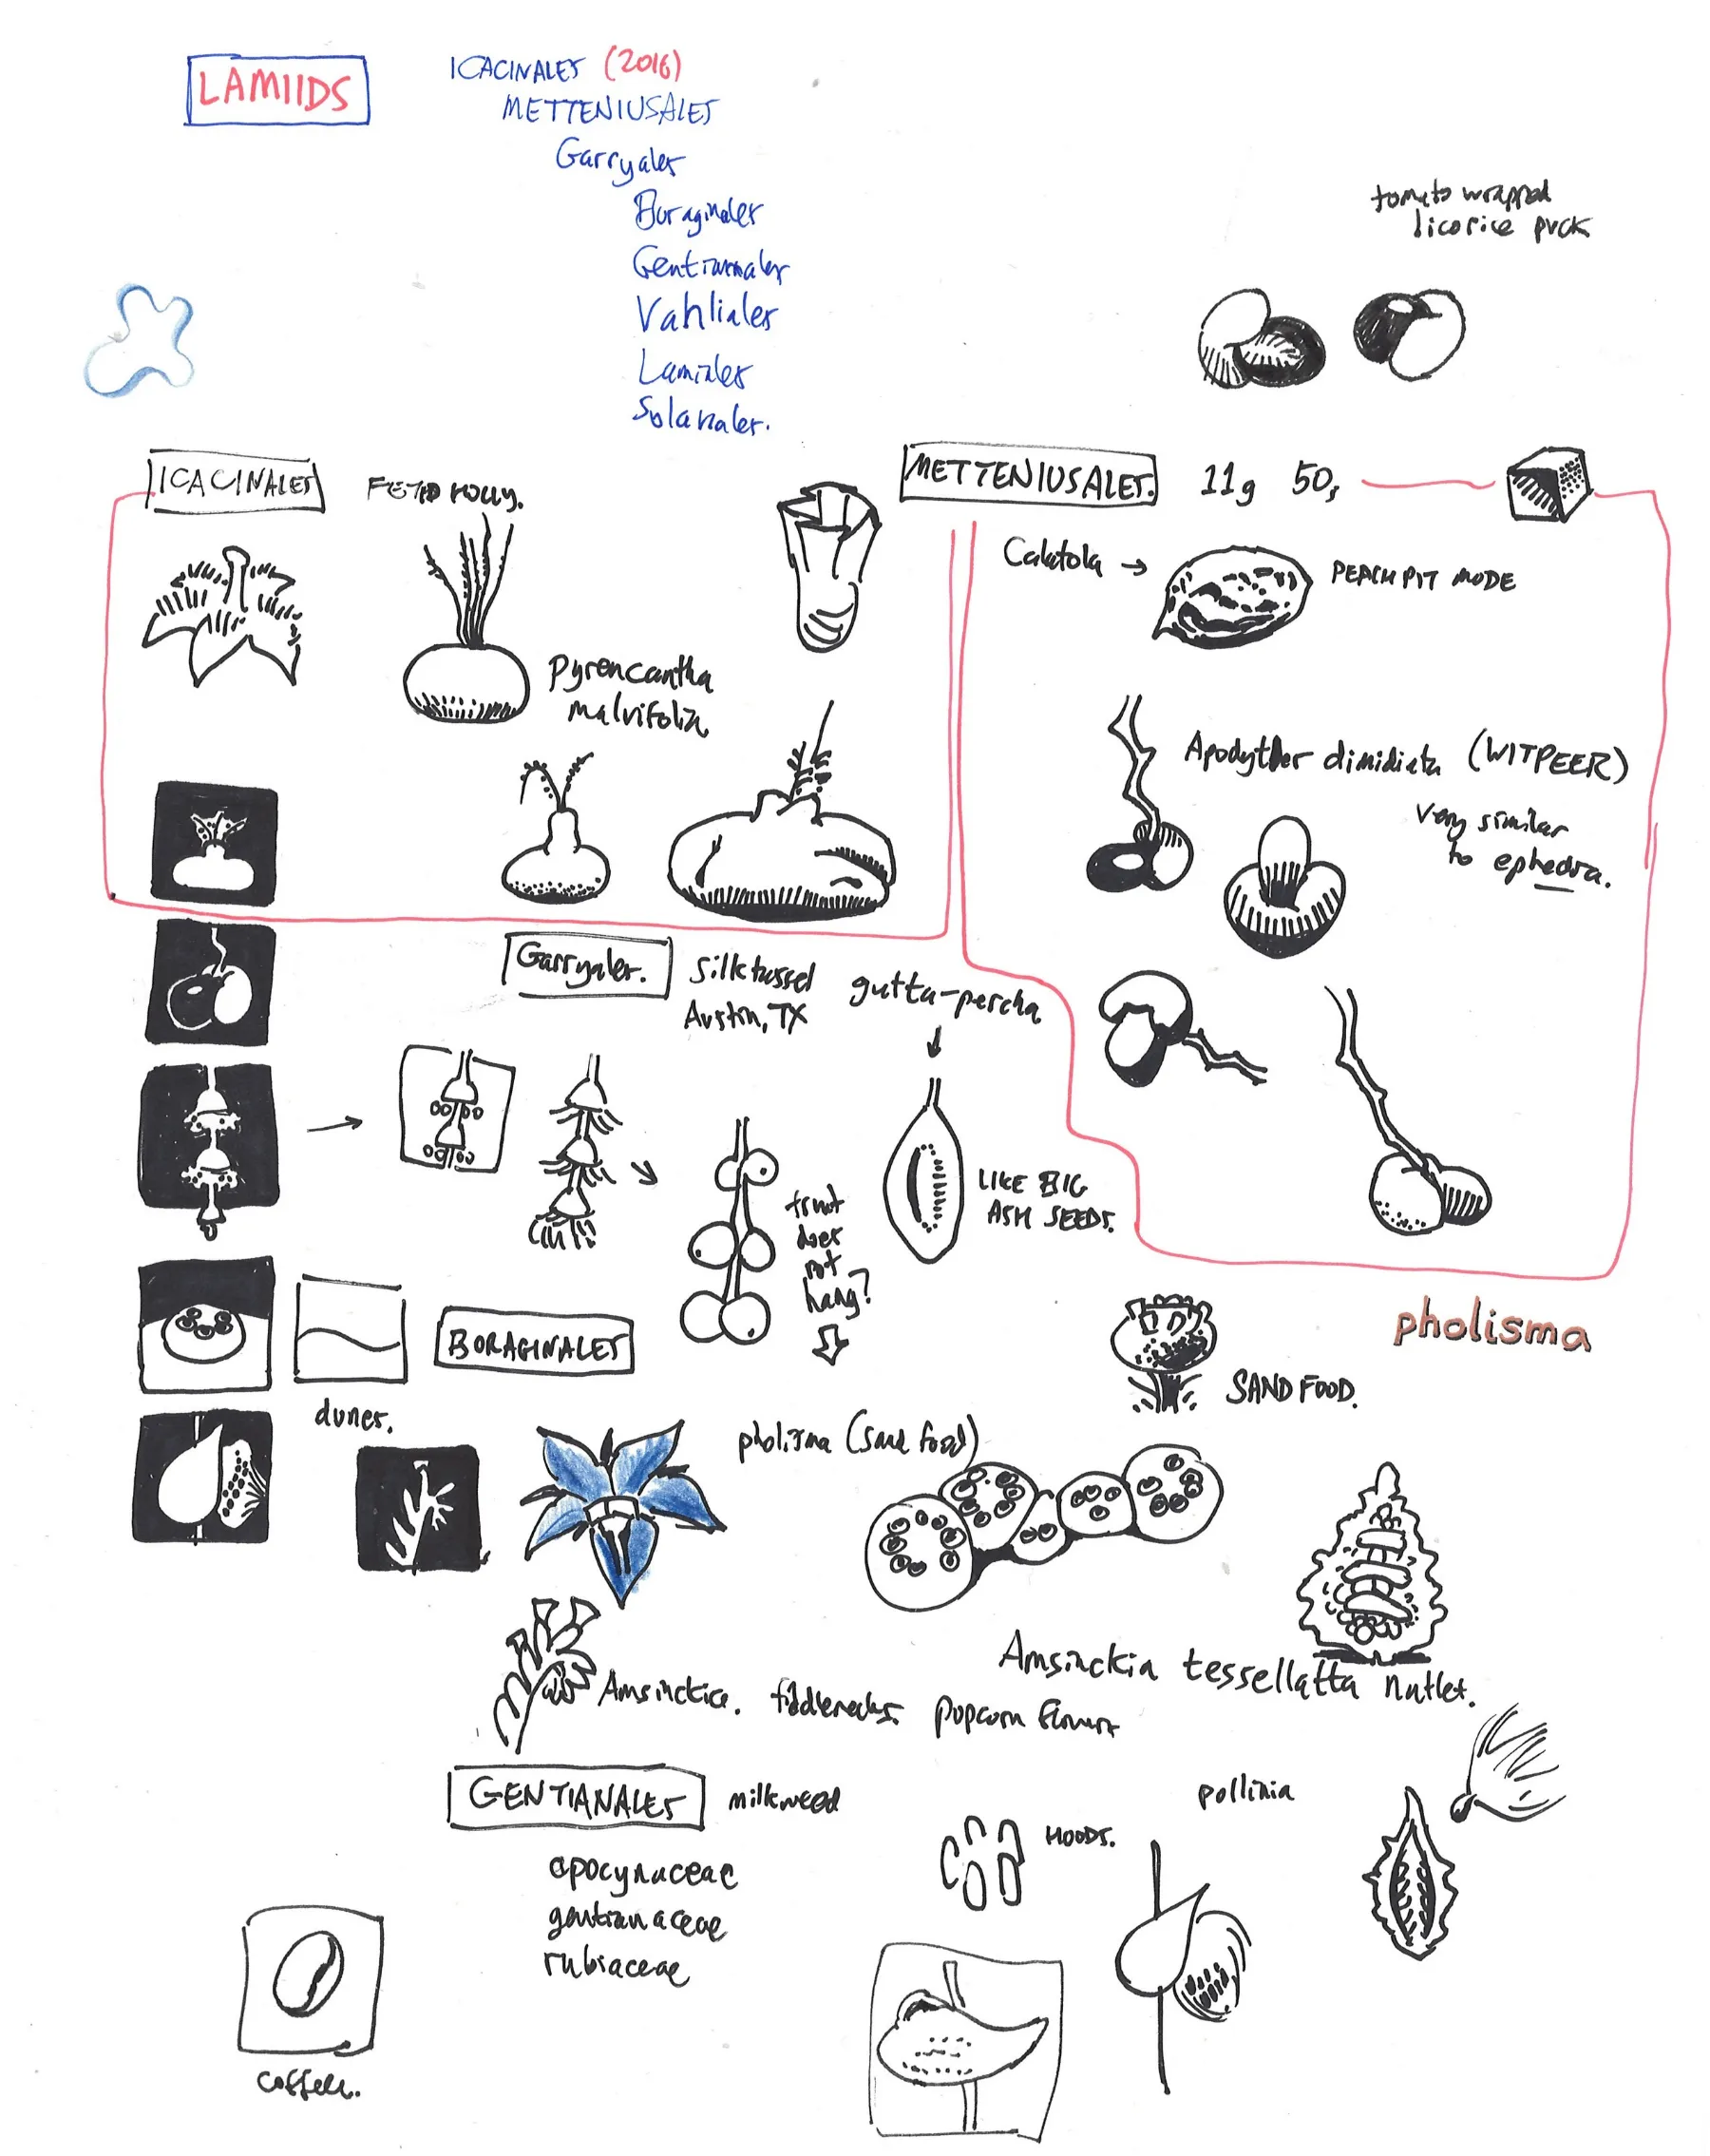 LAMIIDS
ICACINALES (2016)
METTENIUSALES
Garryales
Boraginales
Gentianales
Vahliales
Lamiales
Solanales.
tomato wrapped
licorice puck
ICACINALES
FETID HOLLY.
Pyrencantha
malvifolia
METTENIUSALES. 11g 50s
Calatola →
PEACH PIT MODE
Apodyther dimidiata (WITPEER)
Very similar
to ephedra.
Garryales.
silktassel
Austin, TX
gutta-percha
fruit
does
not
hang?
LIKE BIG
ASH SEEDS.
BORAGINALES
dunes.
pholisma
SAND FOOD.
pholisma (sand food)
Amsinckia tessellatta nutlet.
Amsinckia. fiddlenecks. popcorn flowers
GENTIANALES
milkweed
apocynaceae
gentianaceae
rubiaceae
HOODS.
pollinia
coffee.